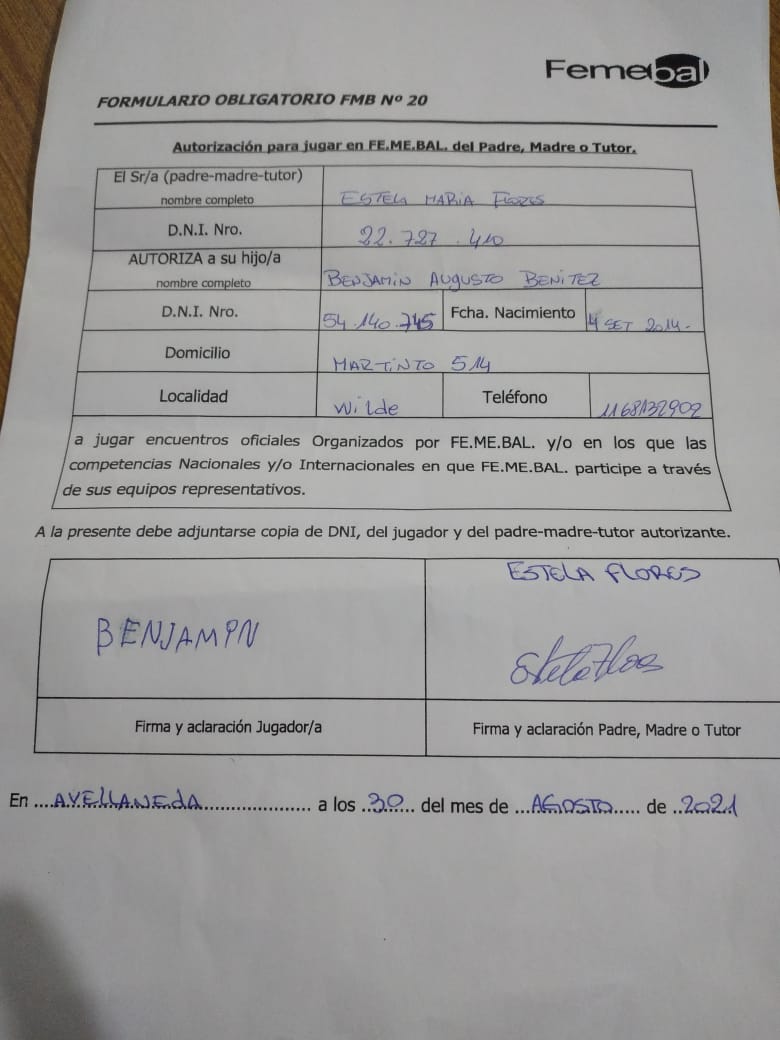 Femebal
FORMULARIO OBLIGATORIO FMB Nº 20
Autorización para jugar en FE.ME.BAL. del Padre, Madre o Tutor.
El Sr/a (padre-madre-tutor)
nombre completo
ESTELA MARIA FLORES
D.N.I. Nro.
22.727.410
AUTORIZA a su hijo/a
nombre completo
BENJAMIN AUGUSTO BENITEZ
D.N.I. Nro.
54.140.745
Fcha. Nacimiento
4 SET 2014.
Domicilio
MARTINTO 514
Localidad
Wilde
Teléfono
1168132902
a jugar encuentros oficiales Organizados por FE.ME.BAL. y/o en los que las
competencias Nacionales y/o Internacionales en que FE.ME.BAL. participe a través
de sus equipos representativos.
A la presente debe adjuntarse copia de DNI, del jugador y del padre-madre-tutor autorizante.
BENJAMIN
ESTELA FLORES
Estela Flores
Firma y aclaración Jugador/a
Firma y aclaración Padre, Madre o Tutor
En ....AVELLANEDA.................... a los ..30.... del mes de ...AGOSTO..... de ..2021